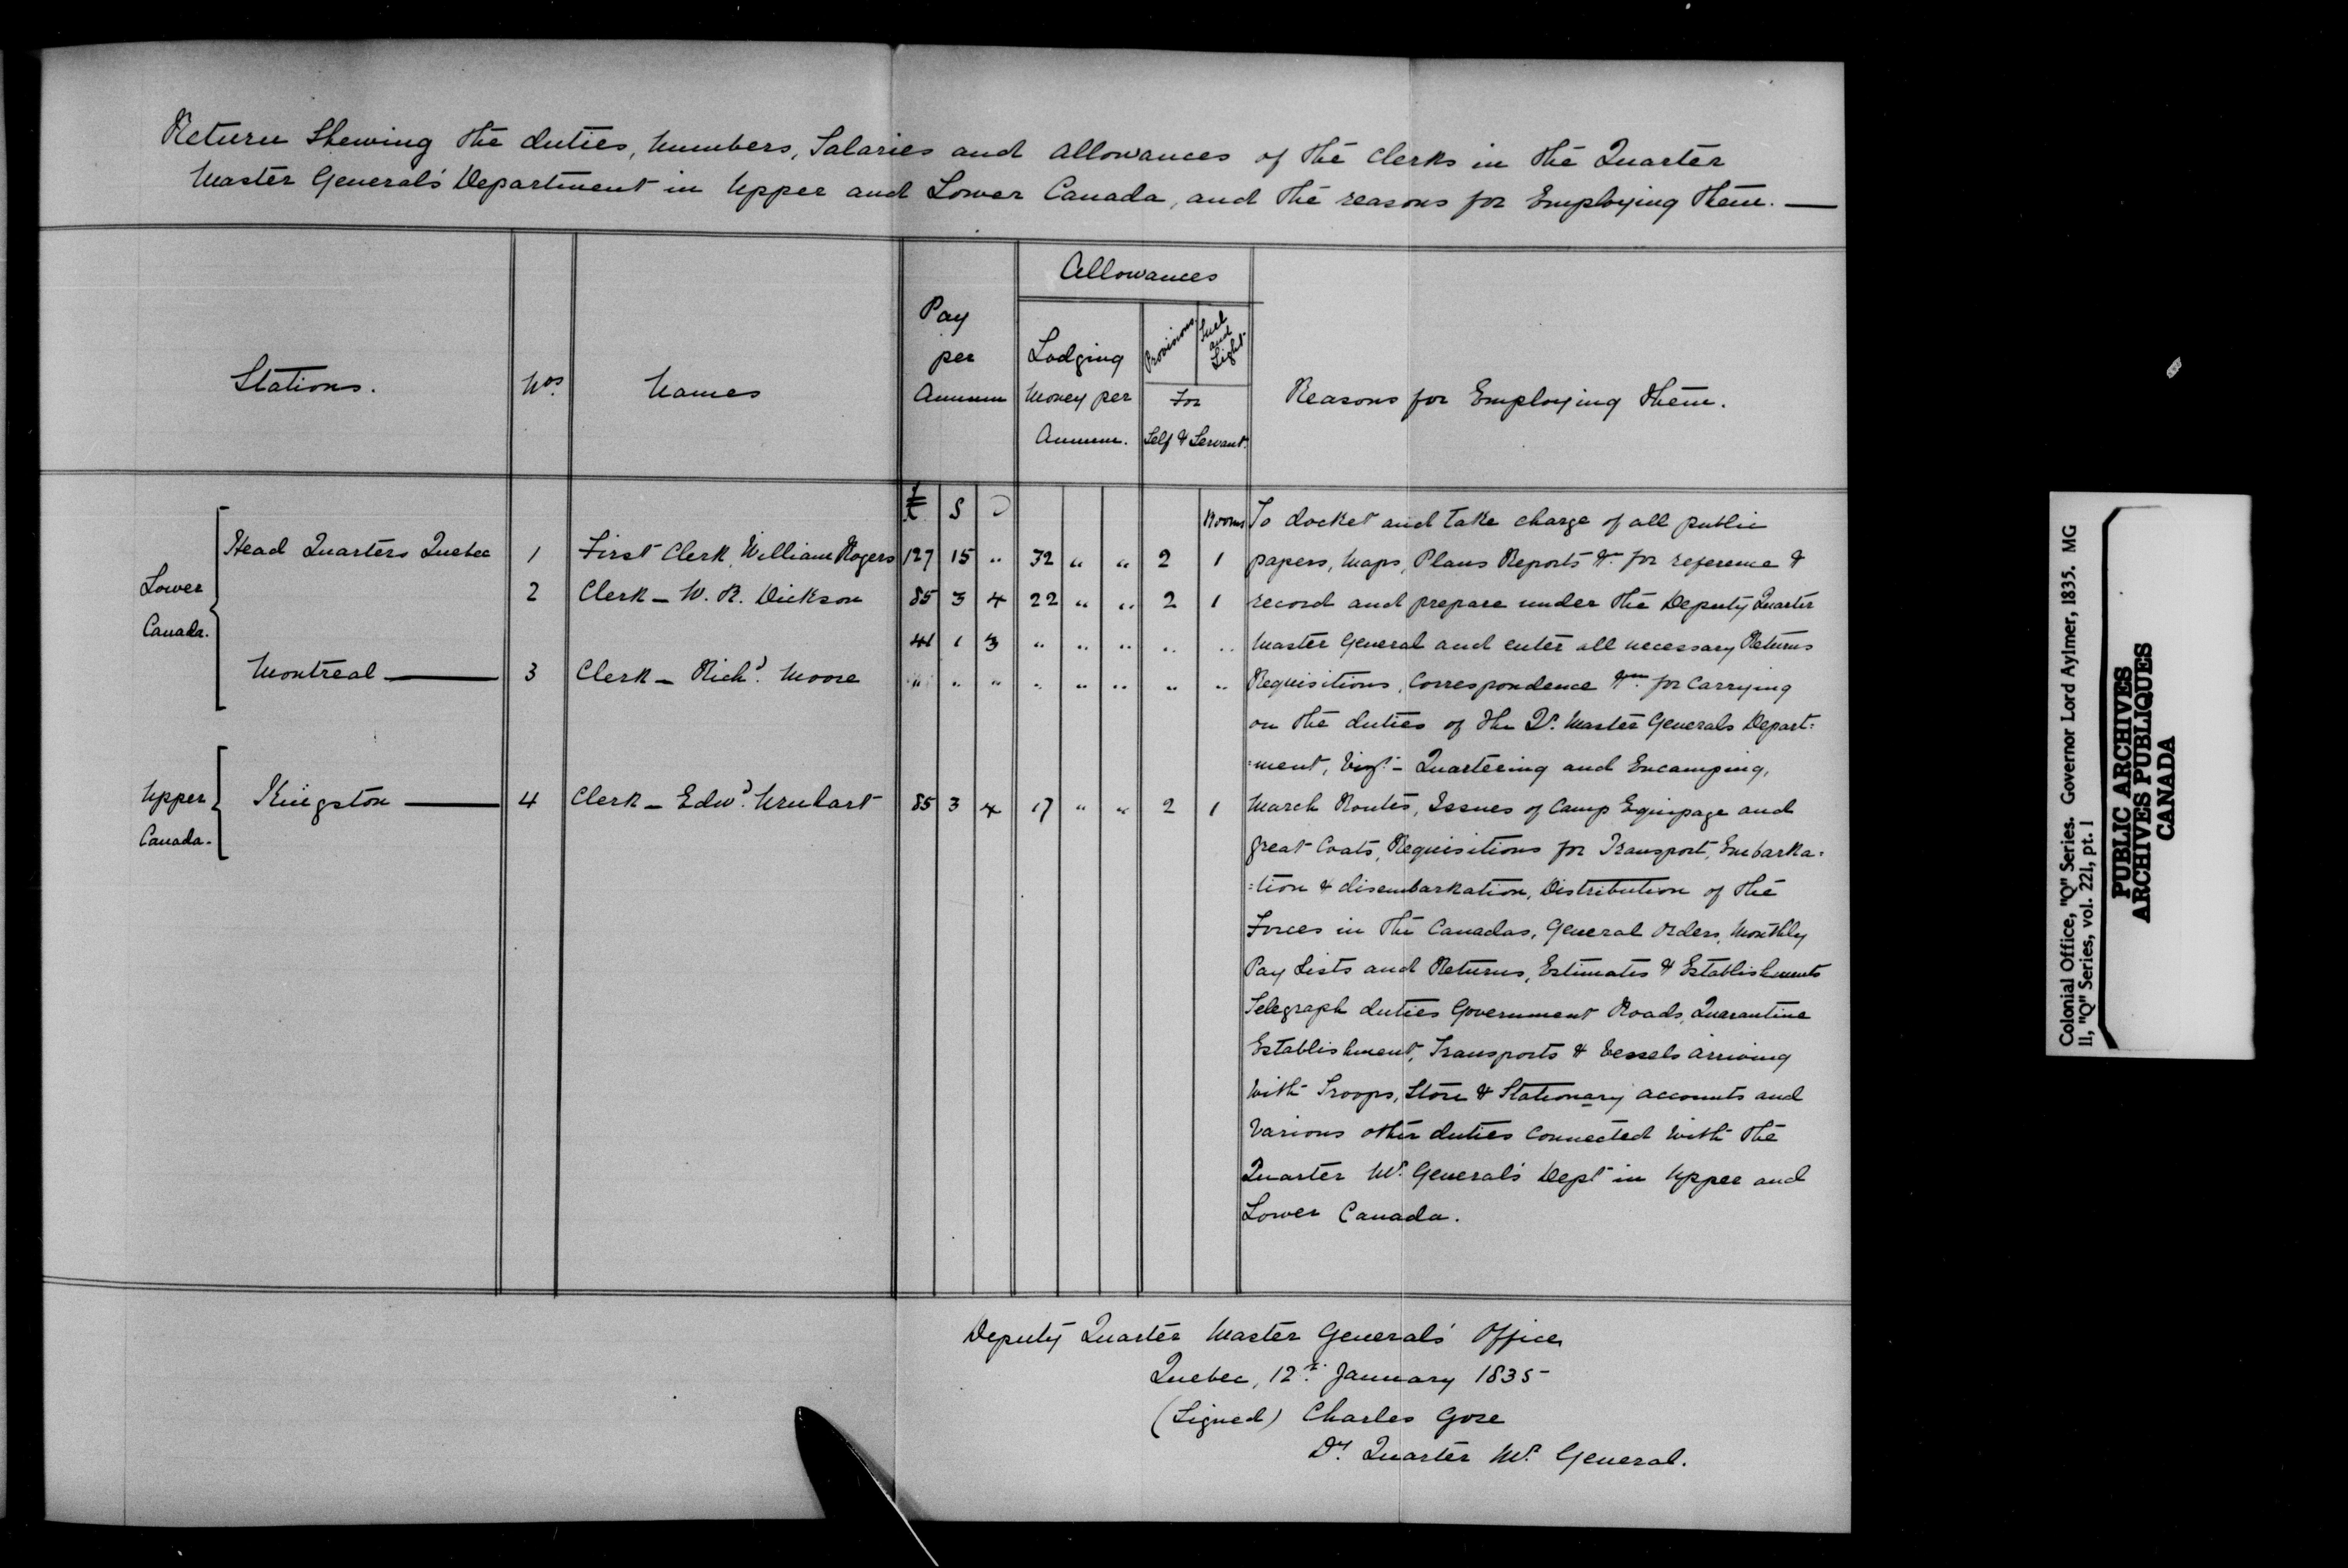 Return Shewing the duties, Numbers, Salaries and Allowances of the Clerks in the Quarter
Master General's Department in Upper and Lower Canada, and the reasons for Employing them. —
Stations.
Nos.
Names
Pay per Annum
Allowances
Lodging Money per Annum.
Provisions
Fuel and Light
For
Self & Servant.
Reasons for Employing them.
£ S D
Rooms
Lower Canada.
Head Quarters Quebec 1 First Clerk, William Rogers 127 15 " 32 " " 2 1
2 Clerk — W. R. Dickson 85 3 4 22 " " 2 1
41 1 3 " " " " "
Montreal — 3 Clerk — Richd. Moore " " " " " " " "
Upper Canada.
Kingston — 4 Clerk — Edwd. 85 3 4 17 " " 2 1
To docket and take charge of all public
papers, Maps, Plans Reports &c for reference &
record and prepare under the Deputy Quarter
Master General and enter all necessary Returns
Requisitions, Correspondence &c for Carrying
on the duties of the Qr. Master Generals Depart:
:ment, Vizt. — Quartering and Encamping,
March Routes, Issues of Camp Equipage and
great Coats, Requisitions for Transport, Embarka:
:tion & disembarkation, Distribution of the
Forces in the Canadas, General Orders, Monthly
Pay Lists and Returns, Estimates & Establishments
Telegraph duties Government Roads, Quarantine
Establishment, Transports & Vessels arriving
with Troops, Store & Stationary accounts and
Various other duties connected with the
Quarter Mr. General's Dept in Upper and
Lower Canada.
Deputy Quarter Master General's Office
Quebec, 12th. January 1835
(Signed) Charles Gore
Dy. Quarter Mr. General.
Colonial Office, "Q" Series. Governor Lord Aylmer, 1835. MG
11, "Q" Series, vol. 221, pt. 1
PUBLIC ARCHIVES
ARCHIVES PUBLIQUES
CANADA